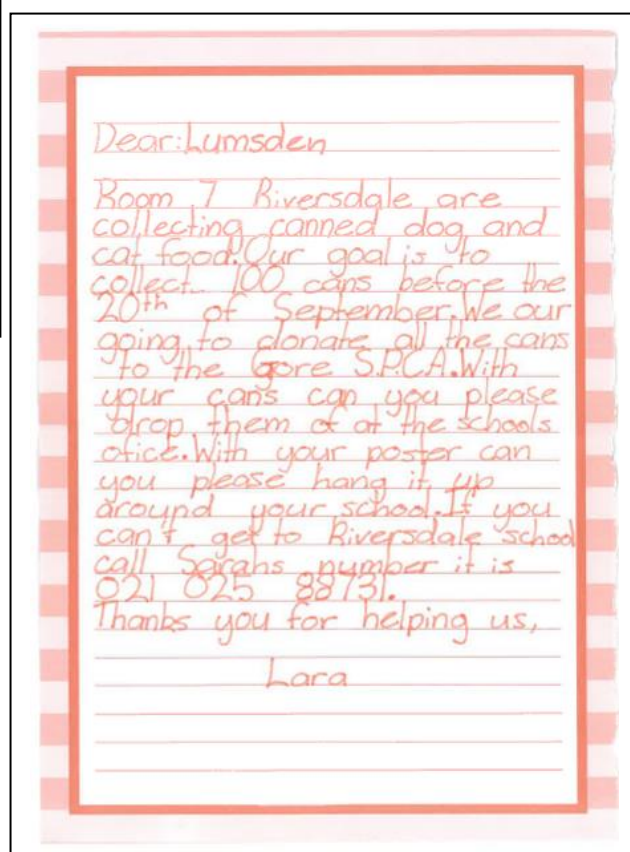 Dear:Lumsden
Room 7 Riversdale are
collecting canned dog and
cat food.Our goal is to
collect 100 cans before the
20th of September.We our
going to donate all the cans
to the Gore S.P.C.A.With
your cans can you please
drop them of at the schools
ofice.With your poster can
you please hang it up
around your school.If you
can't get to Riversdale school
call Sarahs number it is
021 025 88731.
Thanks you for helping us,
Lara